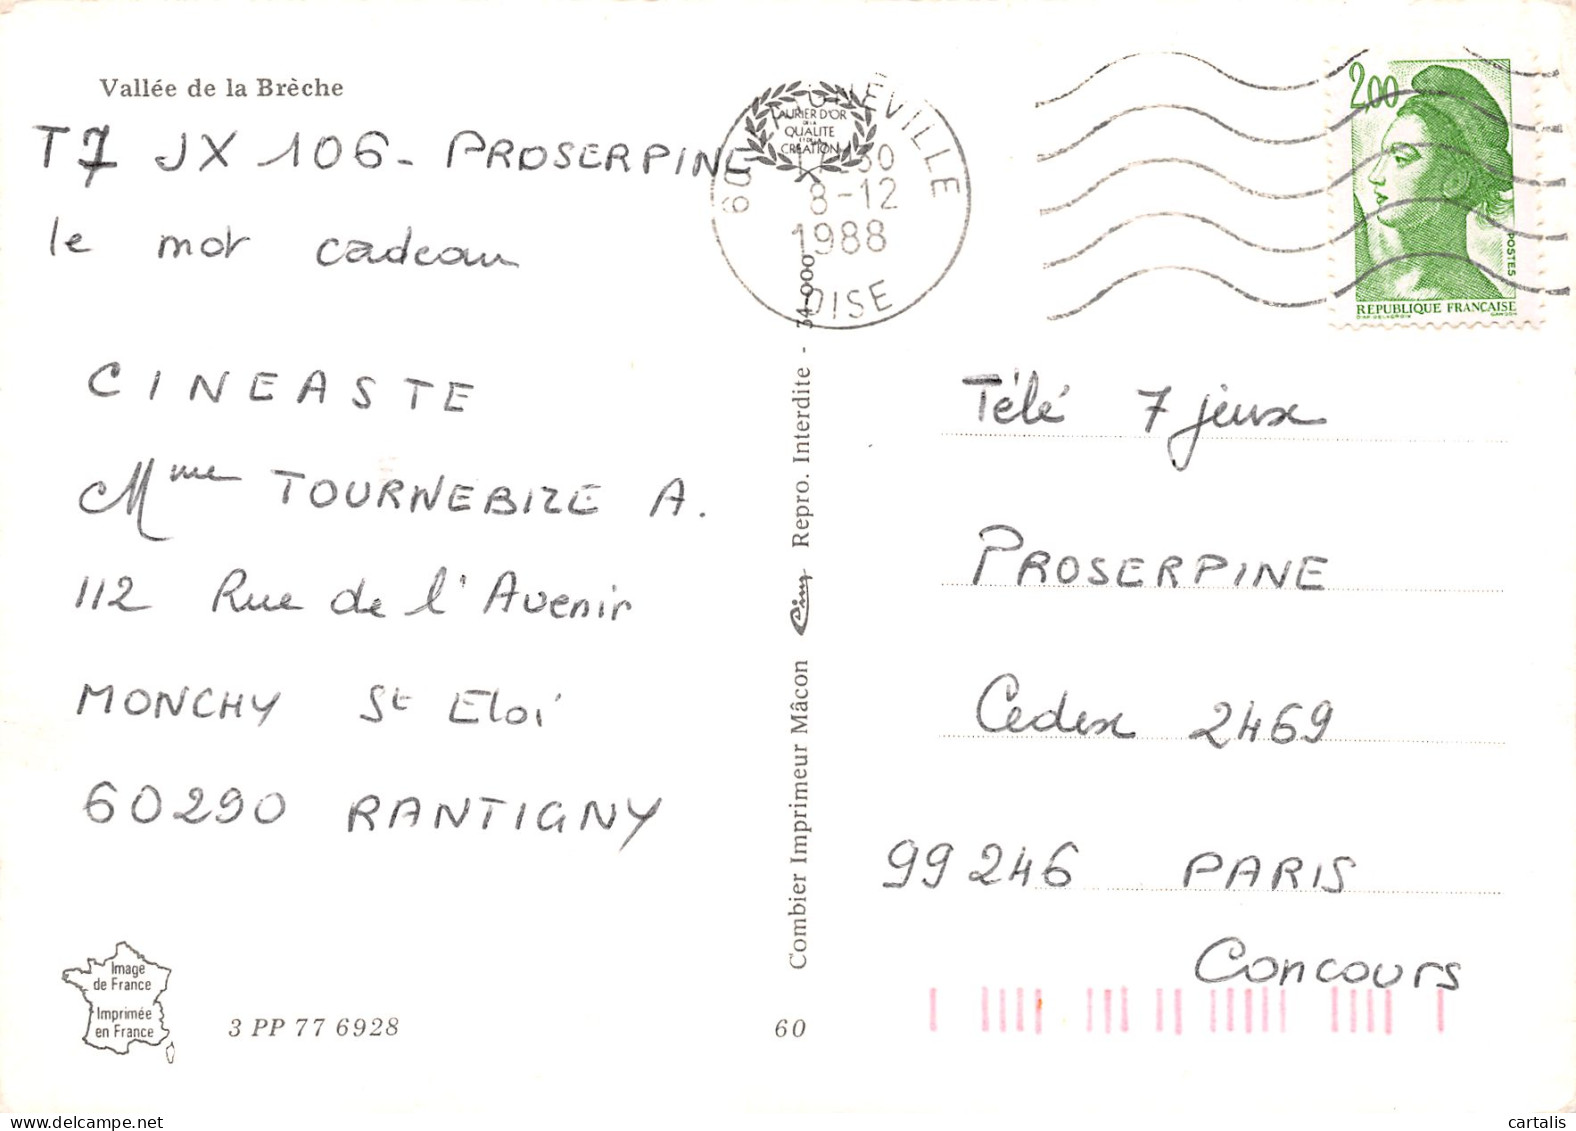 Vallée de la Brèche
T7 JX 106 - PROSERPINE
le mot cadeau
CINEASTE
Mme TOURNEBIZE A.
112 Rue de l'Avenir
MONCHY St Eloi
60290 RANTIGNY
Image
de France
Imprimée
en France
3 PP 77 6928
60
Combier Imprimeur Mâcon Cim Repro. Interdite - 34-000
LAURIER D'OR
DE LA
QUALITE
ET DE LA
CREATION
8-12
1988
OISE
2,00
POSTES
REPUBLIQUE FRANÇAISE
D'AP. DELACROIX GANDON
Télé 7 jeux
PROSERPINE
Cedex 2469
99246 PARIS
Concours
cartalis